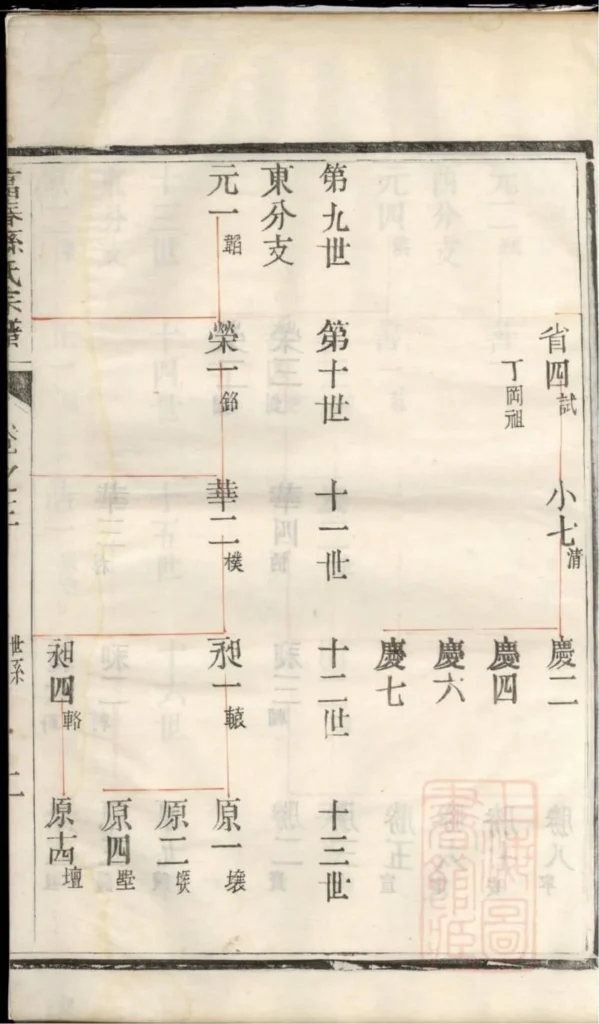 省四試
丁岡祖
小七清
慶二
慶四
慶六
慶七
第九世
第十世
十一世
十二世
十三世
東分支
元一韜
榮一鄧
華二樸
昶一轅
原一壤
原二
原四
昶四輅
原十四壇
富春孫氏宗譜
卷之三
世系
二